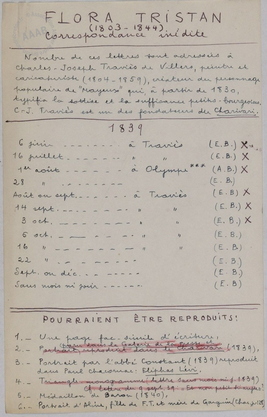 FLORA TRISTAN
(1803-1844)
Correspondance inédite
Nombre de ces lettres sont adressées à
Charles-Joseph Traviès de Villers, peintre et
caricaturiste (1804-1859), créateur du personnage
populaire de "Mayeux" qui à partir de 1830,
typifia la sottise et la suffisance petite-bourgeoise.
C-J. Traviès est un des fondateurs du Charivari.
1839
6 juin - - - - à Traviès (E.B.) X
16 juillet - - - - " " (E.B.) X
1er août - - - - à Olympe*** (A.B.) X
28 " - - - - (E.B.)
Août ou sept. - - - - à Traviès (E.B.) X
14 sept. - - - - " " (E.B.) X
3 oct. - - - - " " (E.B.) X
5 oct. - - - - " " (E.B.)
16 " - - - - " " (E.B.)
22 " - - - - " " (E.B.)
Sept. ou déc. - - - - (E.B.)
Sans mois ni jour - - - - (E.B.)
POURRAIENT ÊTRE REPRODUITS:
1.- Une page fac-similé d'écriture.
2.- Portrait reproduit dans le (1839)
3.- Portrait par l'abbé Constant (1839) reproduit
dans Paul Chacornac: Eliphas Lévi
4.-
5.- Médaillon de (1840).
6.- Portrait d'Aline, fille de F.T. et mère de Gauguin